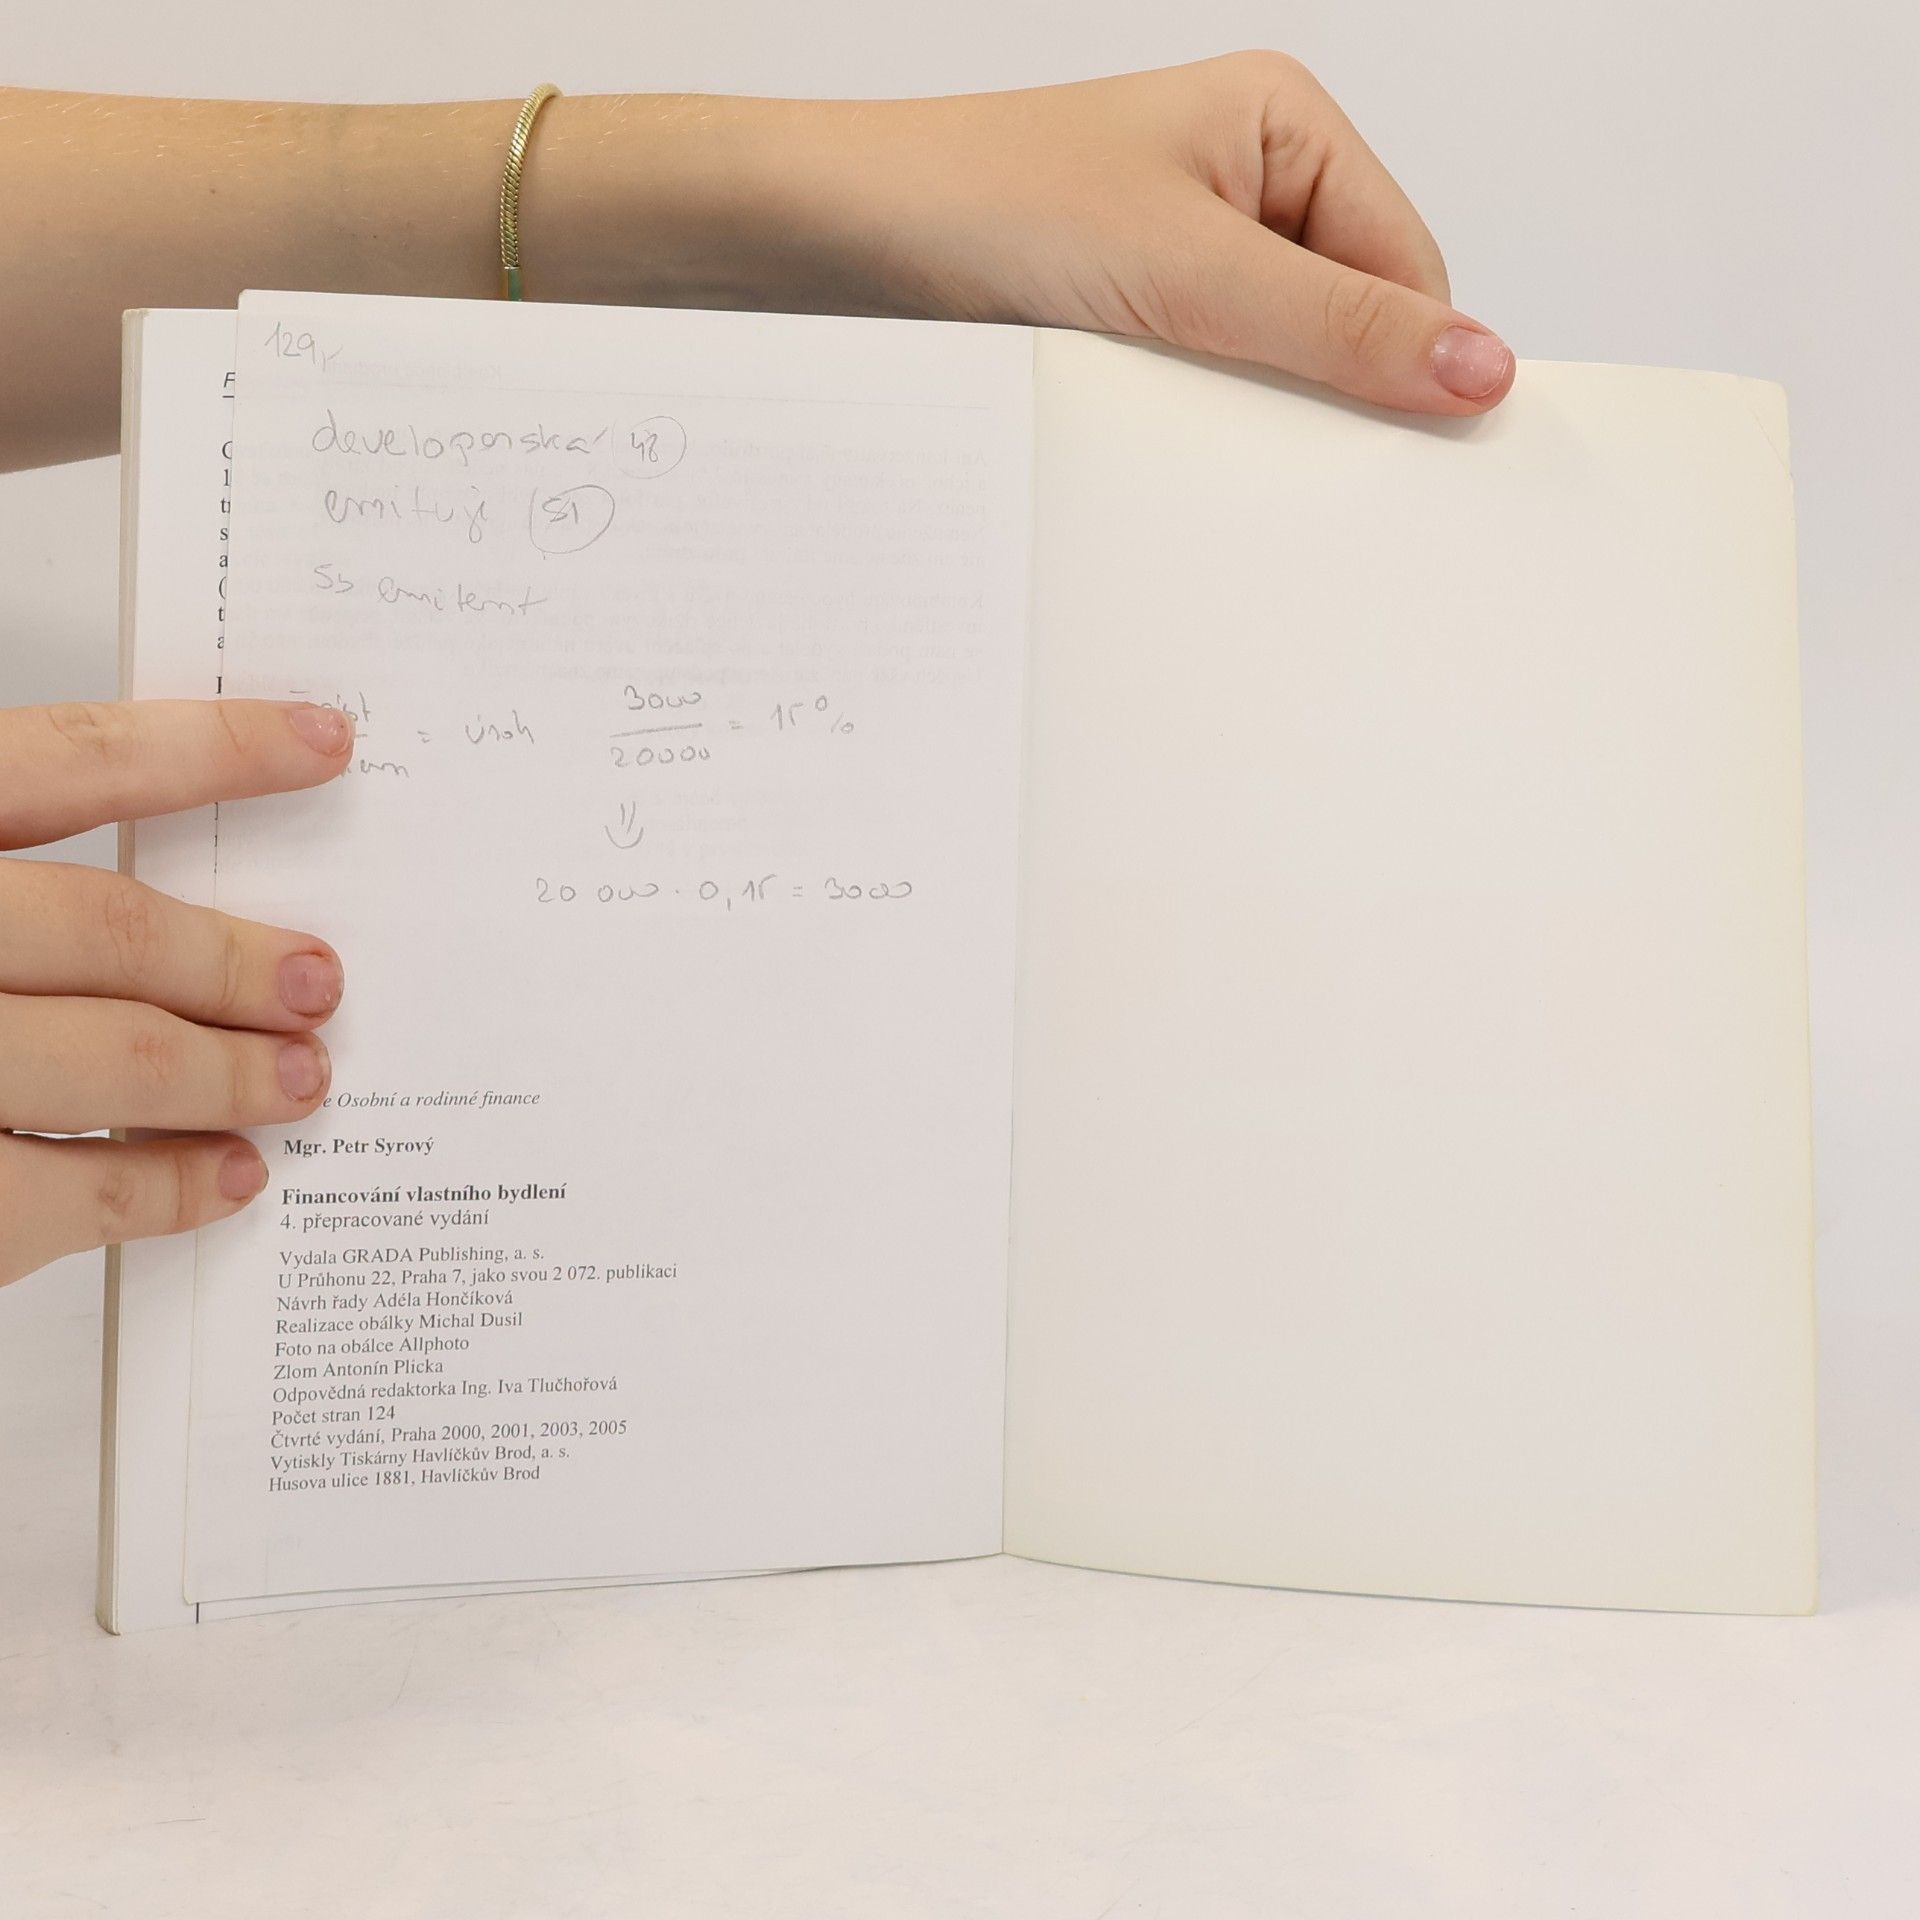 129,-
developerská 48
emituji 51
55 emitent
= úrok 3000 / 20000 = 15 %
20 000 · 0,15 = 3000
e Osobní a rodinné finance
Mgr. Petr Syrový
Financování vlastního bydlení
4. přepracované vydání
Vydala GRADA Publishing, a. s.
U Průhonu 22, Praha 7, jako svou 2 072. publikaci
Návrh řady Adéla Hončíková
Realizace obálky Michal Dusil
Foto na obálce Allphoto
Zlom Antonín Plicka
Odpovědná redaktorka Ing. Iva Tlučhořová
Počet stran 124
Čtvrté vydání, Praha 2000, 2001, 2003, 2005
Vytiskly Tiskárny Havlíčkův Brod, a. s.
Husova ulice 1881, Havlíčkův Brod